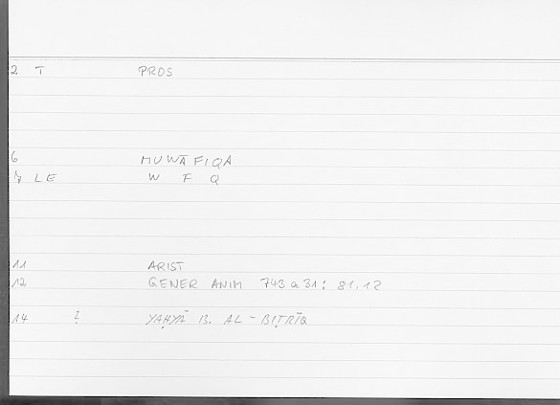 2 T PROS
6 MUWĀFIQA
LE W F Q
11 ARIST
12 GENER ANIM 743a31: 81.12
14 YAḤYĀ B. AL-BIṬRĪQ